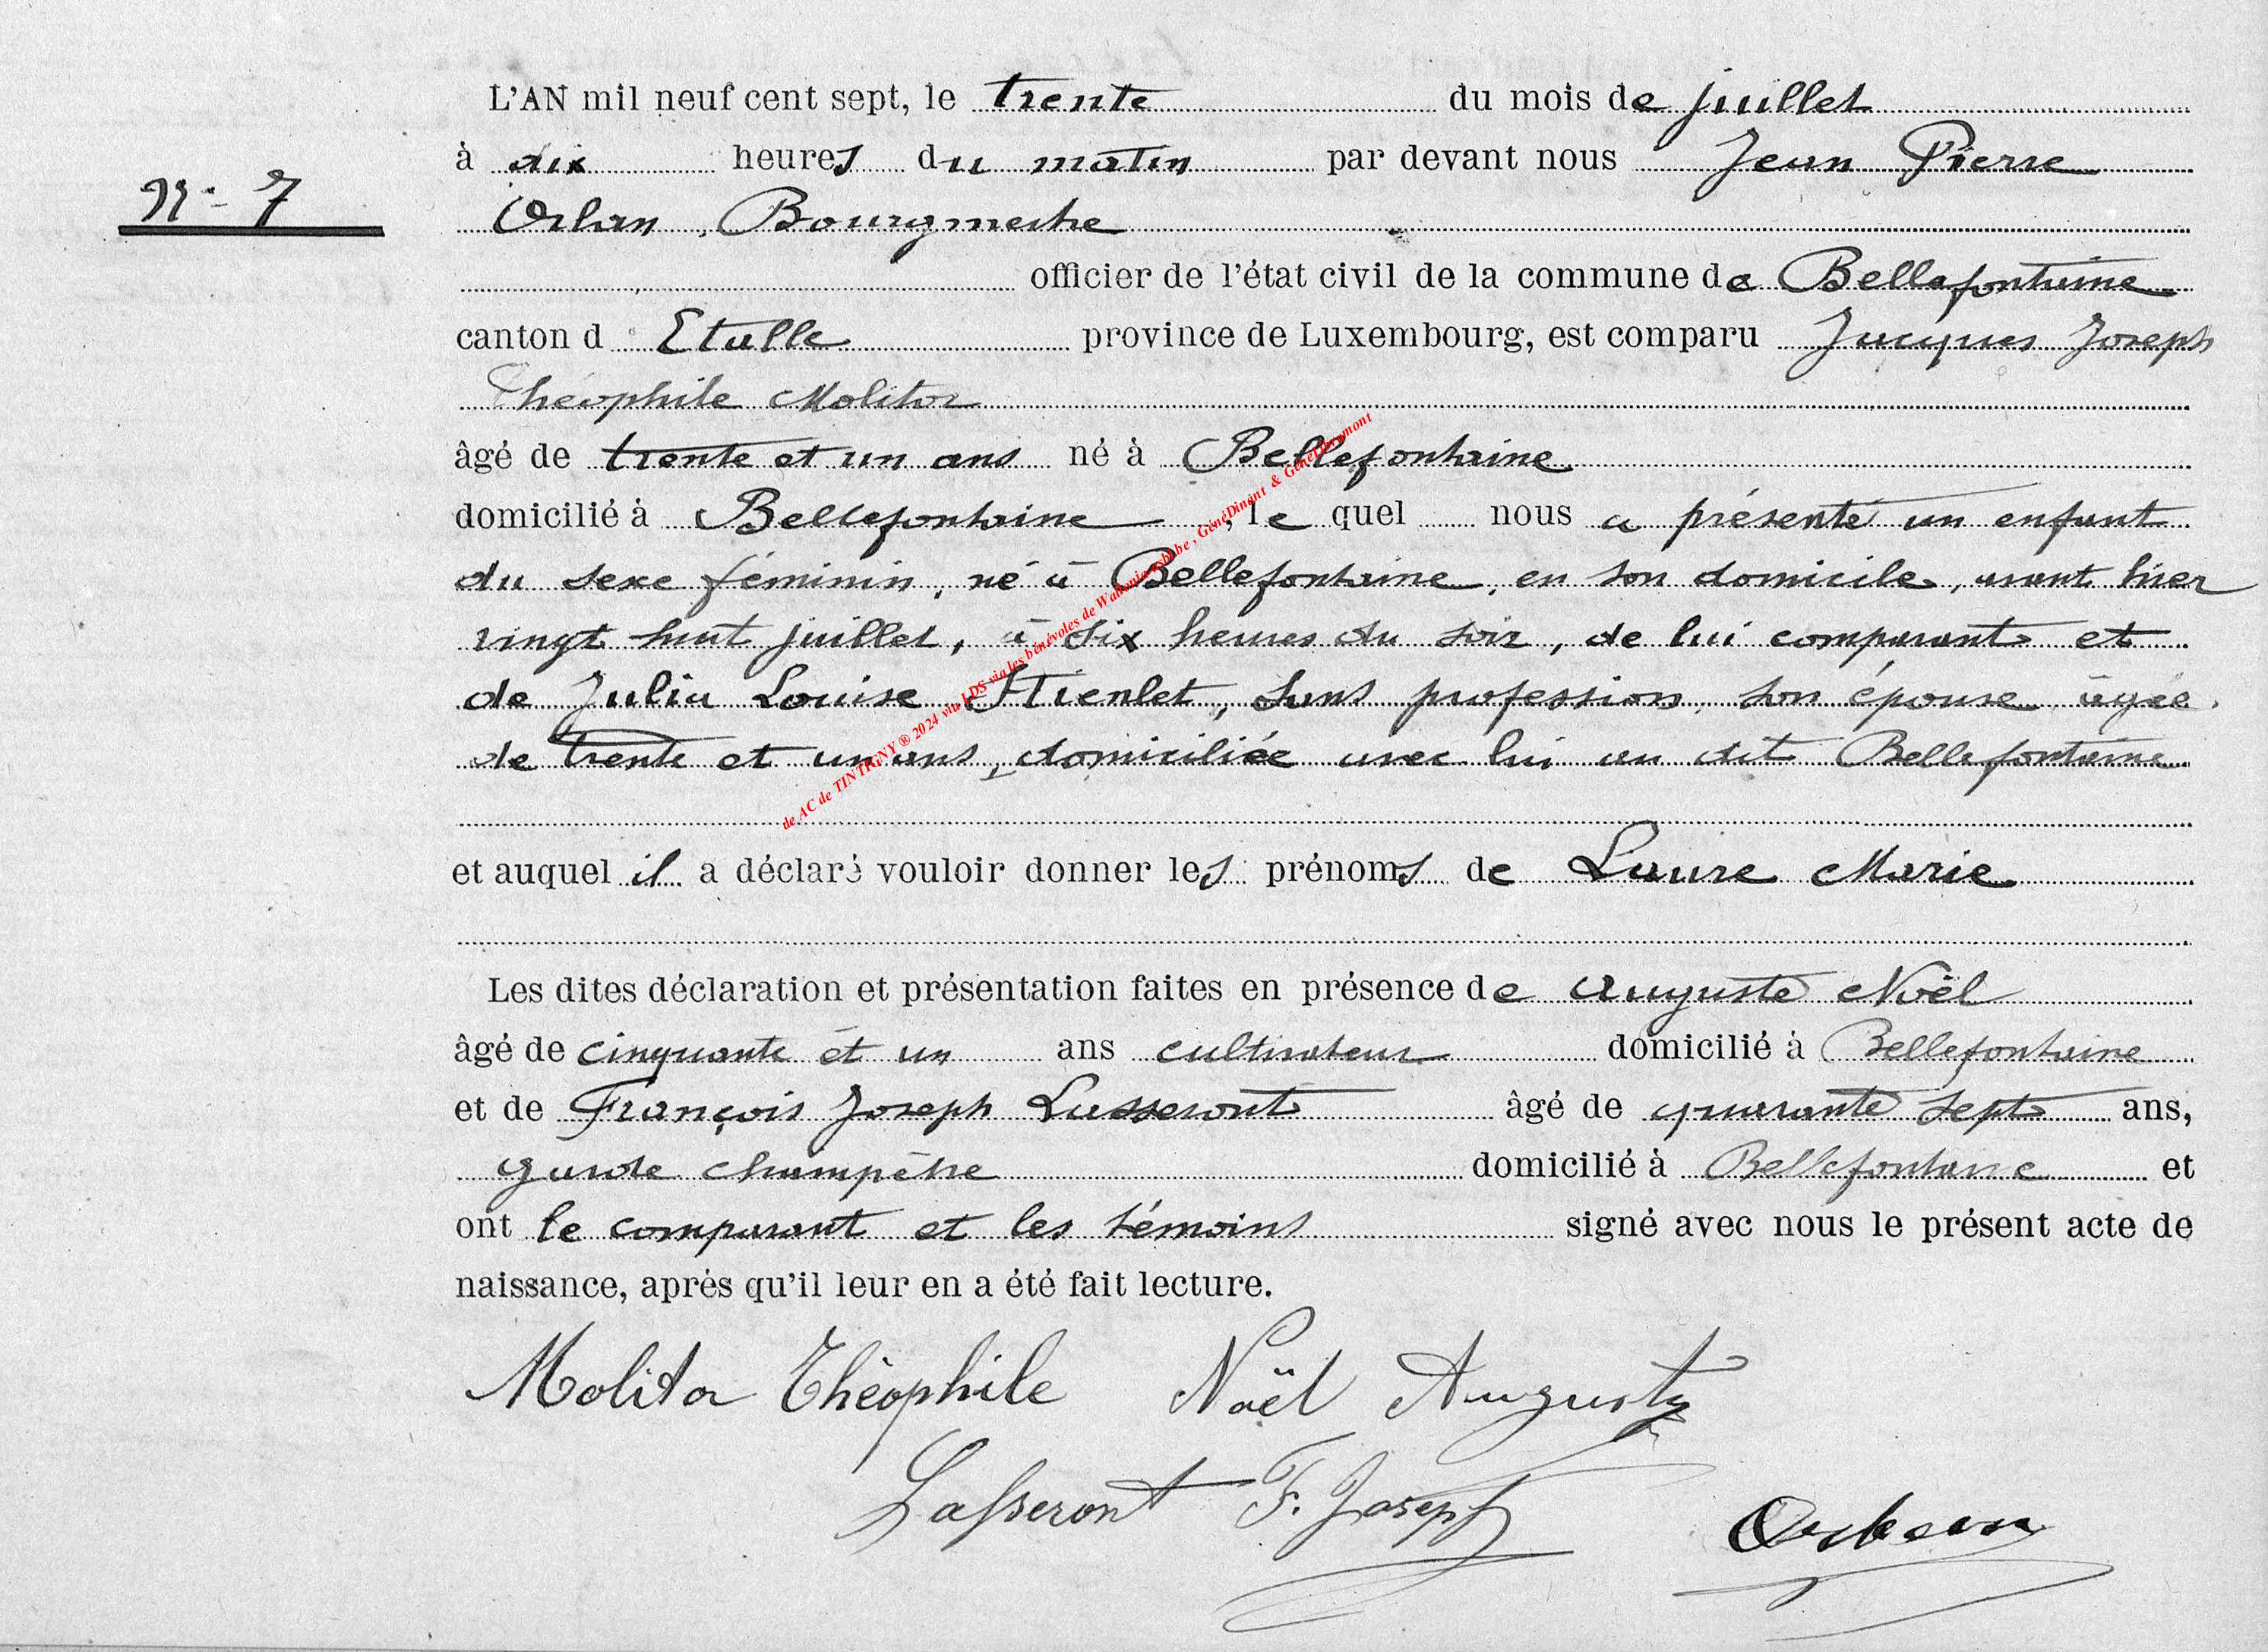 L'AN mil neuf cent sept, le trente du mois de juillet
à dix heures du matin par devant nous Jean Pierre
N° 7
Orban, Bourgmestre
officier de l'état civil de la commune de Bellefontaine
canton d' Etalle province de Luxembourg, est comparu Jacques Joseph
Théophile Molitor
âgé de trente et un ans né à Bellefontaine
domicilié à Bellefontaine, le quel nous a présenté un enfant
du sexe féminin, né à Bellefontaine, en son domicile, avant hier
vingt huit juillet, à six heures du soir, de lui comparant et
de Julia Louise, sans profession, son épouse, âgée
de trente et un ans, domiciliée avec lui au dit Bellefontaine
et auquel il a déclaré vouloir donner les prénoms de Laure Marie
Les dites déclaration et présentation faites en présence de Auguste Noël
âgé de cinquante et un ans cultivateur domicilié à Bellefontaine
et de François Joseph Lasseront âgé de quarante sept ans,
garde champêtre domicilié à Bellefontaine et
ont le comparant et les témoins signé avec nous le présent acte de
naissance, après qu'il leur en a été fait lecture.
Molitor Théophile Noël Auguste
Lasseront F. Joseph
Orban
de AC de TINTIGNY ® 2024 via LDS via les bénévoles de , GénéDinant &